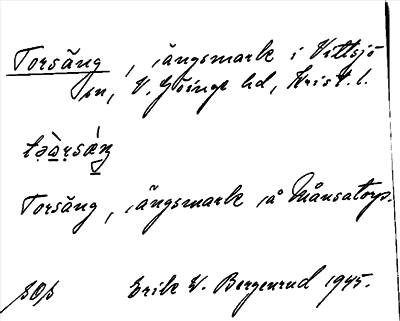 Torsäng, ängsmark i Vittsjö
sn, V. Göinge hd, Krist. l.
Torsäng, ängsmark på Månsatorp.
Erik W. Bergenrud 1945.